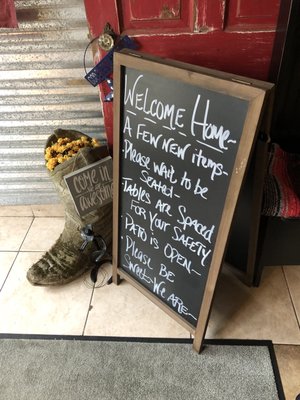 Welcome Home~
A Few New Items~
·Please wait to be
Seated~
·Tables are Spaced
For Your Safety~
·Patio is Open~
·Please Be
Sweet~We are~
come in
we are
awesome